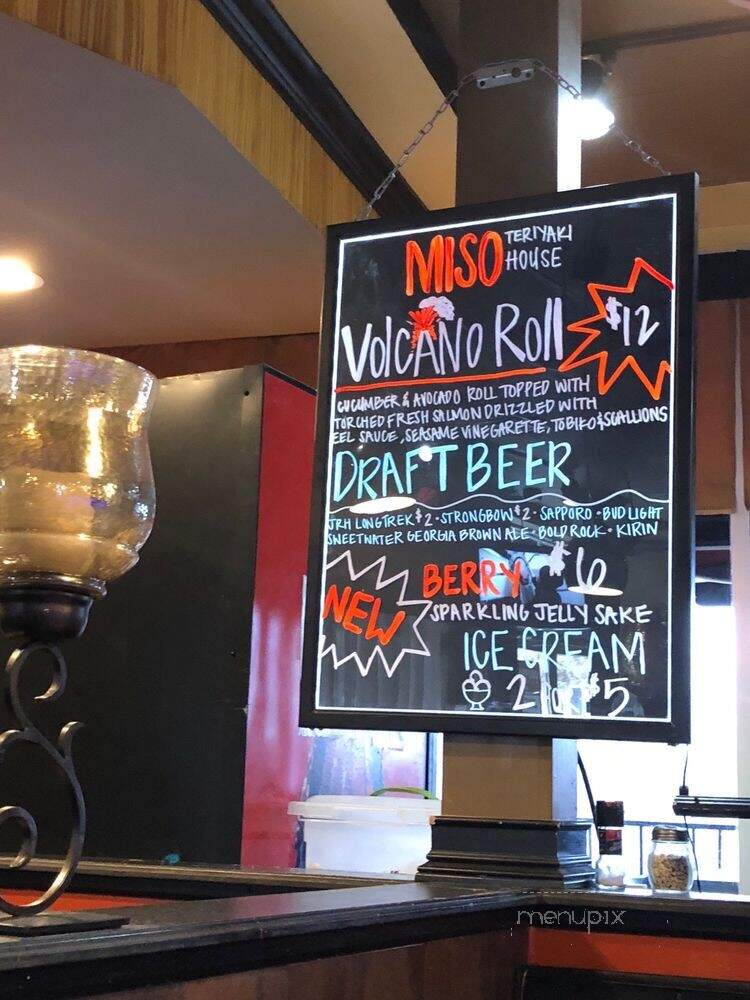 MISO TERIYAKI HOUSE
VOLCANO ROLL $12
CUCUMBER & AVOCADO ROLL TOPPED WITH
TORCHED FRESH SALMON DRIZZLED WITH
EEL SAUCE, SEASAME VINEGARETTE, TOBIKO & SCALLIONS
DRAFT BEER
JRH LONGTREK $2 - STRONGBOW $2 - SAPPORO - BUD LIGHT
SWEETWATER GEORGIA BROWN ALE - BOLD ROCK - KIRIN
NEW
BERRY $6
SPARKLING JELLY SAKE
ICE CREAM
2 FOR $5
menupix